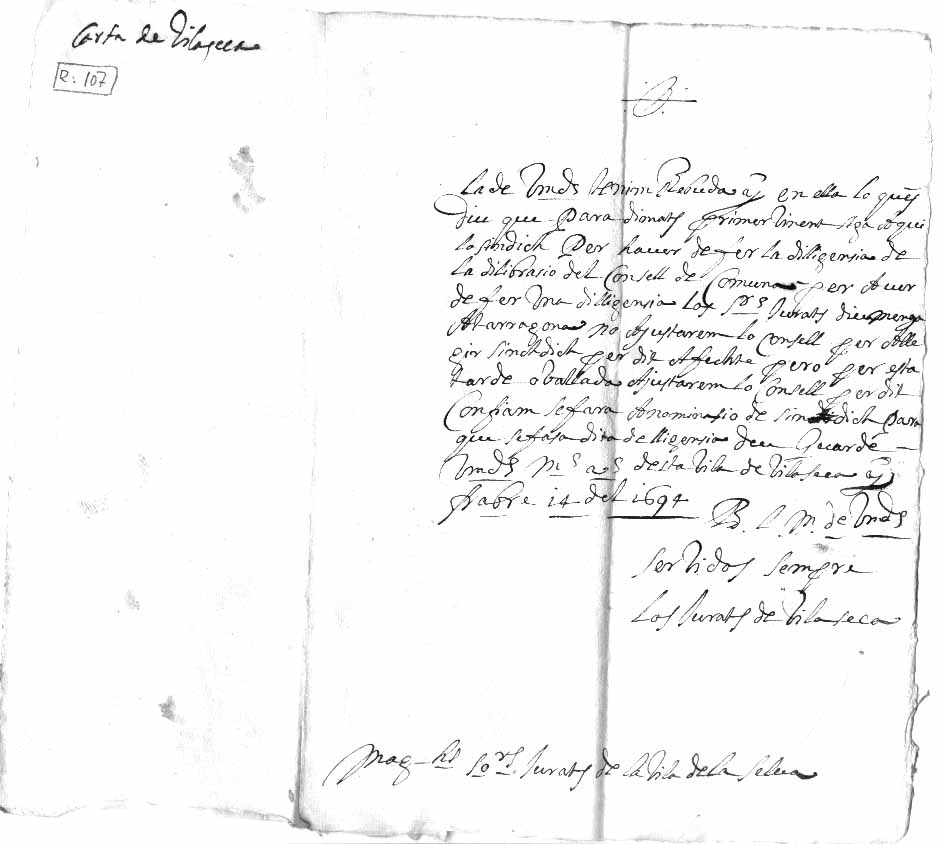 Carta de Vilaseca
R: 107
.B.
La de Vmds tenim Rebuda y en ella lo quens
diu que Para dionats primertinent siga aqui
lo sindich Per haver de fer la dilligensia de
la dilibrasio del Consell de Comuna per Aver
de fer Una dilligensia Los Srs Jurats diumenge
Atarragona no Ajustarem lo Consell per Alle
gir sindich per dit Afechte pero per esta
tarde o vallada Ajustarem lo Consell per dit
Confiam se fara Anominasio de sindich Para
que se fasa dita delligensia deu Guarde
Vmds Ms as desta Vila de Vilaseca y
frabre 14 del 1694
B. L. M. de Vmds
servidos sempre
Los Jurats de Vilaseca
Mag-chs Sors. Jurats de la Vila de la Selva